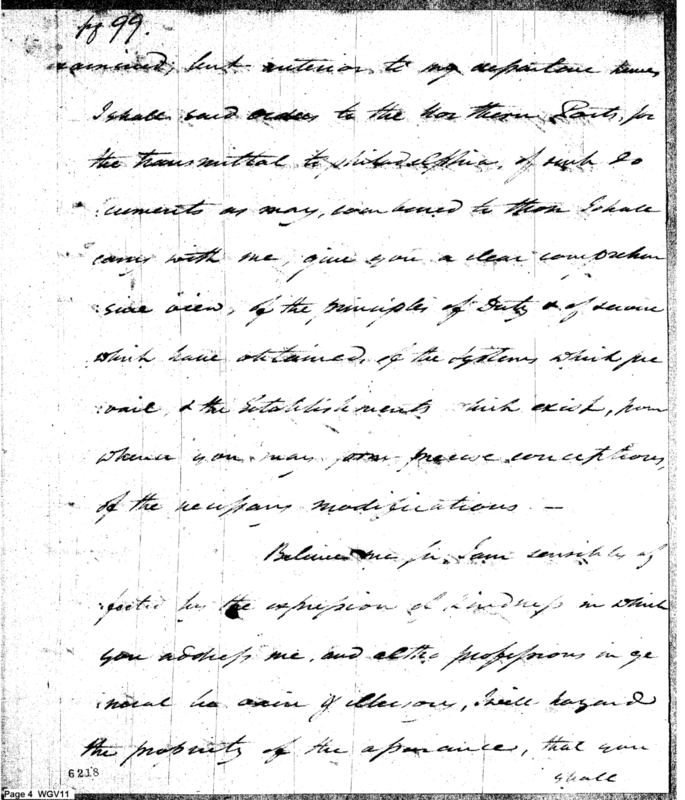 pg 99.
examined, but anterior to my departure hence
I shall send orders to the Northern Posts, for
the transmittal to philadelphia, of such do
:cuments as may, combined to those I shall
carry with me, give you a clear comprehen
:sive view, of the principles of Duty & of service
which have obtained, of the systems which pre
:vail & the Establishments which exist, from
whence you may form precise conceptions,
of the necessary modifications —
Believe me Sir, I am sensibly af
:fected by the expression of kindness in which
you address me, and altho professions in ge
:neral be vain & illusory, I will hazard
the propriety of the assurance, that you
shall
6218
Page 4 WGV11